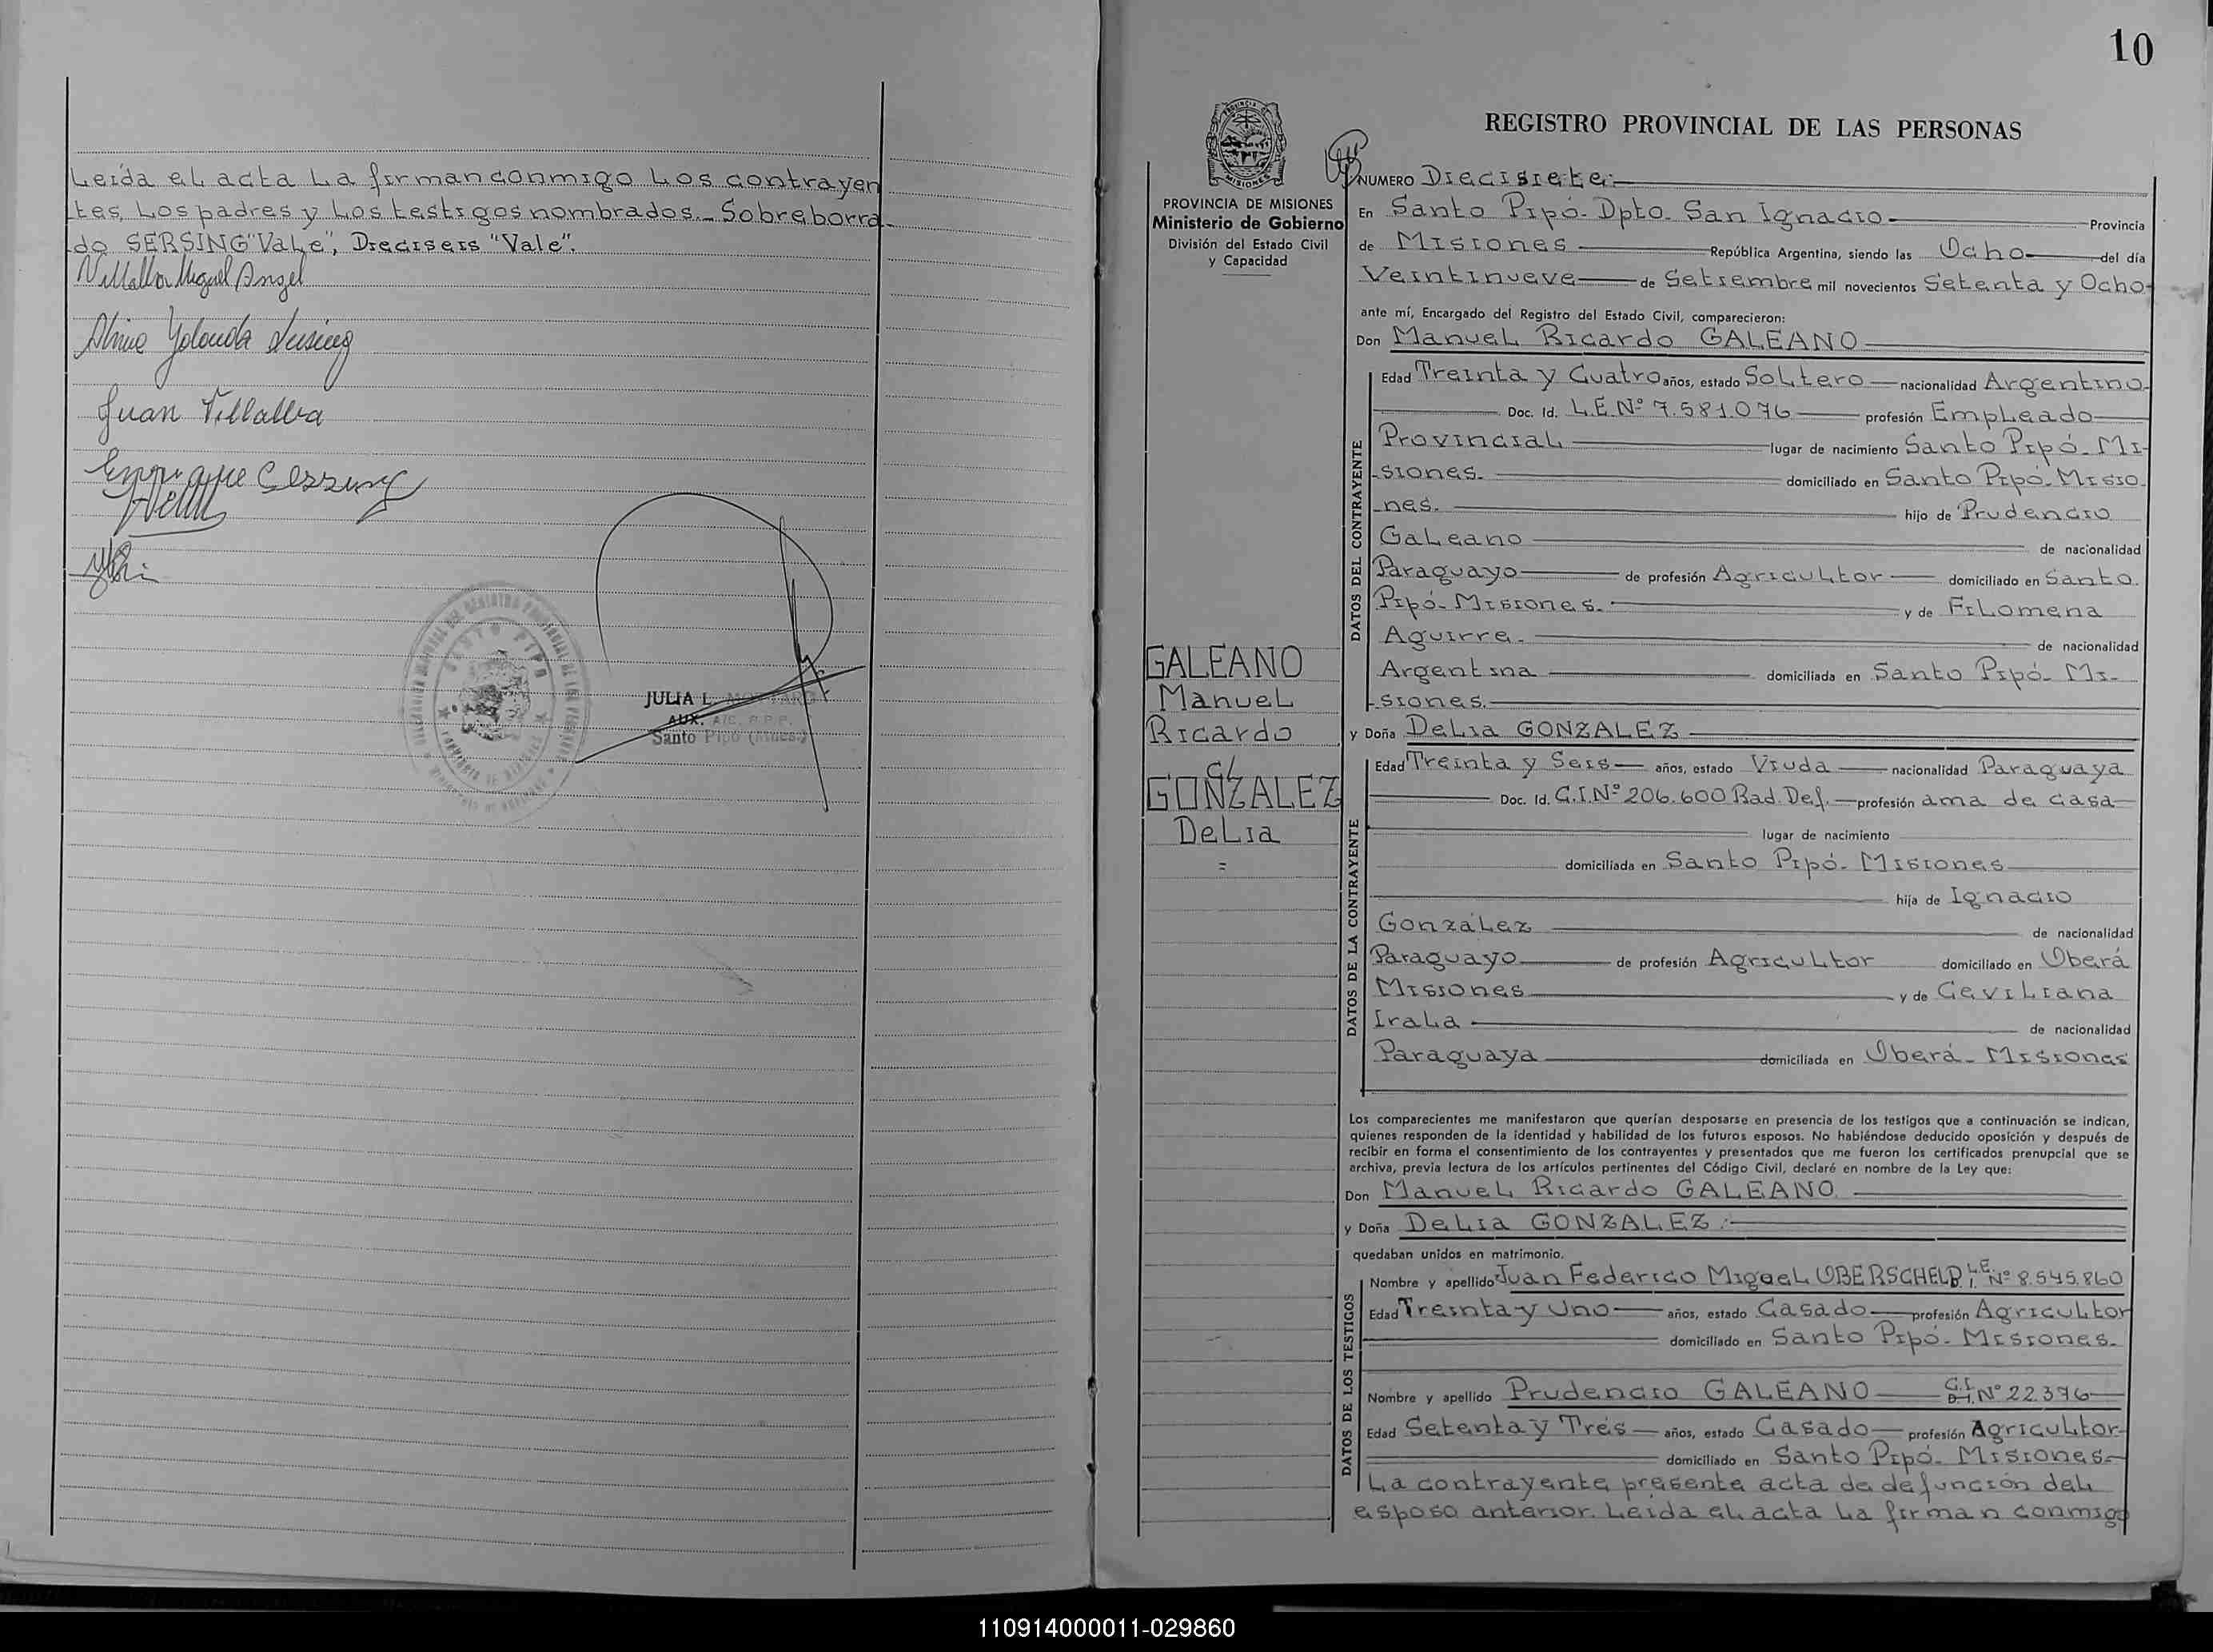 Leída el acta la firman conmigo los contrayen
tes, los padres y los testigos nombrados.- Sobreborra-
do SERSING "Vale", Dieciseis "Vale".
Villalba Miguel Angel
Yolanda
Juan Villalba
Enrique Sersing
JULIA L.
AUX. A/C. R.P.P.
Santo Pipó (Mnes.)
10
REGISTRO PROVINCIAL DE LAS PERSONAS
PROVINCIA DE MISIONES
Ministerio de Gobierno
División del Estado Civil
y Capacidad
GALEANO
Manuel
Ricardo
c/
GONZALEZ
Delia
=
NUMERO Diecisiete:
En Santo Pipó- Dpto. San Ignacio- Provincia
de Misiones República Argentina, siendo las Ocho del día
Veintinueve de Setiembre mil novecientos Setenta y Ocho
ante mí, Encargado del Registro del Estado Civil, comparecieron:
Don Manuel Ricardo GALEANO
DATOS DEL CONTRAYENTE
Edad Treinta y Cuatro años, estado Soltero nacionalidad Argentino
Doc. Id. L.E.Nº 7.581.076 profesión Empleado
Provincial lugar de nacimiento Santo Pipó- Mi-
siones. domiciliado en Santo Pipó- Misio
nes. hijo de Prudencio
Galeano de nacionalidad
Paraguayo de profesión Agricultor domiciliado en Santo
Pipó- Misiones. y de Filomena
Aguirre. de nacionalidad
Argentina domiciliada en Santo Pipó- Mi-
siones.
y Doña Delia GONZALEZ
DATOS DE LA CONTRAYENTE
Edad Treinta y Seis años, estado Viuda nacionalidad Paraguaya
Doc. Id. C.I.Nº 206.600 Rad. Def. profesión ama de casa
lugar de nacimiento
domiciliada en Santo Pipó- Misiones
hija de Ignacio
González de nacionalidad
Paraguayo de profesión Agricultor domiciliado en Oberá
Misiones y de Ceviliana
Irala de nacionalidad
Paraguaya domiciliada en Oberá- Misiones
Los comparecientes me manifestaron que querían desposarse en presencia de los testigos que a continuación se indican,
quienes responden de la identidad y habilidad de los futuros esposos. No habiéndose deducido oposición y después de
recibir en forma el consentimiento de los contrayentes y presentados que me fueron los certificados prenupcial que se
archiva, previa lectura de los artículos pertinentes del Código Civil, declaré en nombre de la Ley que:
Don Manuel Ricardo GALEANO
y Doña Delia GONZALEZ
quedaban unidos en matrimonio.
DATOS DE LOS TESTIGOS
Nombre y apellido Juan Federico Miguel UBERSCHELD L.E. Nº 8.545.860
Edad Treinta y Uno años, estado Casado profesión Agricultor
domiciliado en Santo Pipó- Misiones.
Nombre y apellido Prudencio GALEANO C.I. D.I. Nº 22.376
Edad Setenta y Trés años, estado Casado profesión Agricultor
domiciliado en Santo Pipó- Misiones-
La contrayente presente acta de defunción del
esposo anterior. Leída el acta la firman conmigo
110914000011-029860